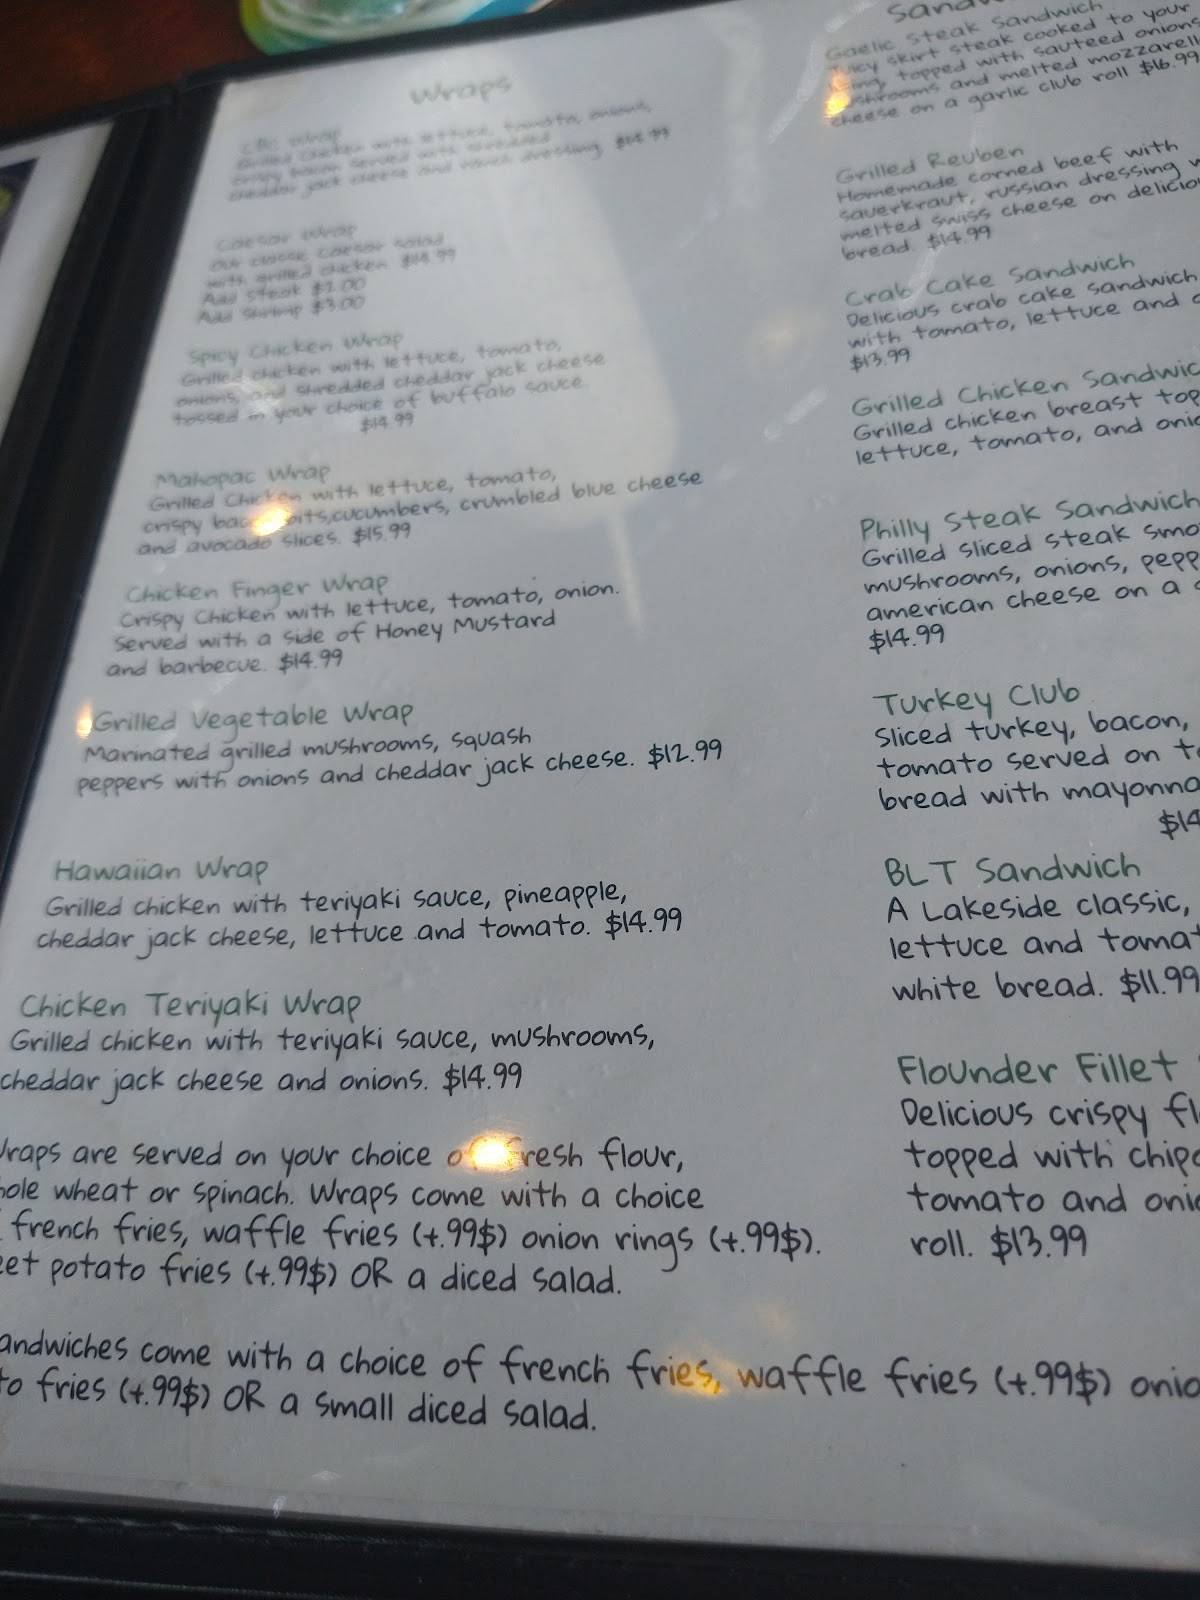 Wraps
Wrap
Grilled Chicken with lettuce, tomato, onions,
crispy bacon served with shredded
cheddar jack cheese and ranch dressing $14.99
Caesar Wrap
Our classic Caesar salad
with grilled chicken $14.99
Add Steak $2.00
Add Shrimp $3.00
Spicy Chicken Wrap
Grilled chicken with lettuce, tomato,
onions, and shredded cheddar jack cheese
tossed in your choice of buffalo sauce.
$14.99
Mahopac Wrap
Grilled Chicken with lettuce, tomato,
crispy bacon bits,cucumbers, crumbled blue cheese
and avocado slices. $15.99
Chicken Finger Wrap
Crispy Chicken with lettuce, tomato, onion.
Served with a side of Honey Mustard
and barbecue. $14.99
Grilled Vegetable Wrap
Marinated grilled mushrooms, squash
peppers with onions and cheddar jack cheese. $12.99
Hawaiian Wrap
Grilled chicken with teriyaki sauce, pineapple,
cheddar jack cheese, lettuce and tomato. $14.99
Chicken Teriyaki Wrap
Grilled chicken with teriyaki sauce, mushrooms,
cheddar jack cheese and onions. $14.99
Wraps are served on your choice of fresh flour,
hole wheat or spinach. Wraps come with a choice
french fries, waffle fries (+.99$) onion rings (+.99$).
eet potato fries (+.99$) OR a diced salad.
andwiches come with a choice of french fries, waffle fries (+.99$) onio
to fries (+.99$) OR a small diced salad.
Sand
Gaelic Steak Sandwich
Juicy skirt steak cooked to your
topped with sauteed onions
mushrooms and melted mozzarella
cheese on a garlic club roll $16.99
Grilled Reuben
Homemade corned beef with
sauerkraut, russian dressing w
melted swiss cheese on delicio
bread. $14.99
Crab Cake Sandwich
Delicious crab cake sandwich
with tomato, lettuce and
$13.99
Grilled Chicken Sandwic
Grilled chicken breast top
lettuce, tomato, and onio
Philly Steak Sandwich
Grilled sliced steak smo
mushrooms, onions, pepp
american cheese on a
$14.99
Turkey Club
Sliced turkey, bacon,
tomato served on to
bread with mayonna
$14
BLT Sandwich
A Lakeside classic,
lettuce and tomat
white bread. $11.99
Flounder Fillet
Delicious crispy fl
topped with chipo
tomato and onio
roll. $13.99